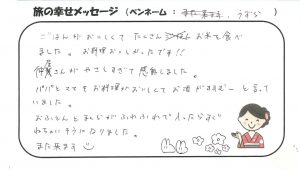 旅の幸せメッセージ（ペンネーム：また来ます、うずら）
ごはんがおいしくてたくさんお米を食べ
ました。お料理おいしかったです!!
仲居さんがやさしすぎて感動しました。
パパとママもお料理がおいしくてお酒がすすむーと言って
いました。
おふとんとまくらがふわふわで入ったらすぐ
ねちゃいそうになりました。
また来ます